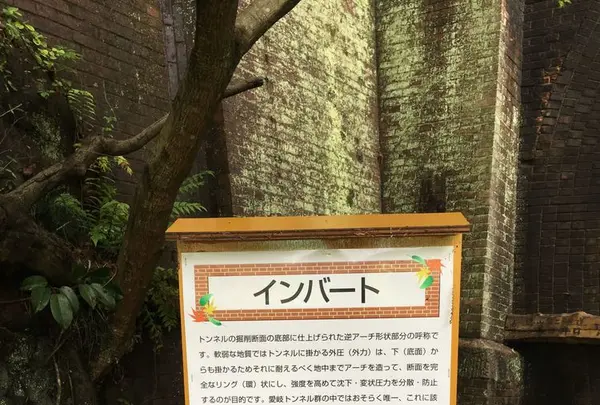 インバート
トンネルの掘削断面の底部に仕上げられた逆アーチ形状部分の呼称で
す。軟弱な地質ではトンネルに掛かる外圧（外力）は、下（底面）か
らも掛かるためそれに耐えるべく地中までアーチを造って、断面を完
全なリング（環）状にし、強度を高めて沈下・変状圧力を分散・防止
するのが目的です。愛岐トンネル群の中ではおそらく唯一、これに該